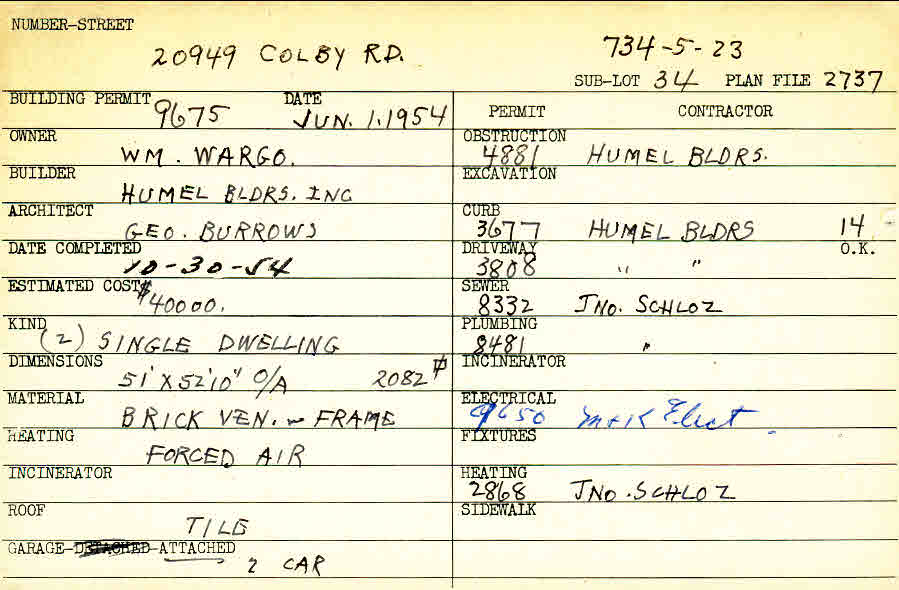 NUMBER-STREET
20949 COLBY RD.
734-5-23
SUB-LOT 34 PLAN FILE 2737
BUILDING PERMIT 9675 DATE JUN. 1.1954
PERMIT CONTRACTOR
OWNER WM. WARGO.
OBSTRUCTION 4881 HUMEL BLDRS.
BUILDER HUMEL BLDRS. INC
EXCAVATION
ARCHITECT GEO. BURROWS
CURB 3677 HUMEL BLDRS 14
DATE COMPLETED 10-30-54
DRIVEWAY 3808 " " O.K.
ESTIMATED COST $40000.
SEWER 8332 JNO. SCHLOZ
KIND (2) SINGLE DWELLING
PLUMBING 8481 "
DIMENSIONS 51' X 52'10" O/A 2082
INCINERATOR
MATERIAL BRICK VEN. FRAME
ELECTRICAL 9650 M+K Elect.
HEATING FORCED AIR
FIXTURES
INCINERATOR
HEATING 2868 JNO. SCHLOZ
ROOF TILE
SIDEWALK
GARAGE-DETACHED-ATTACHED
2 CAR